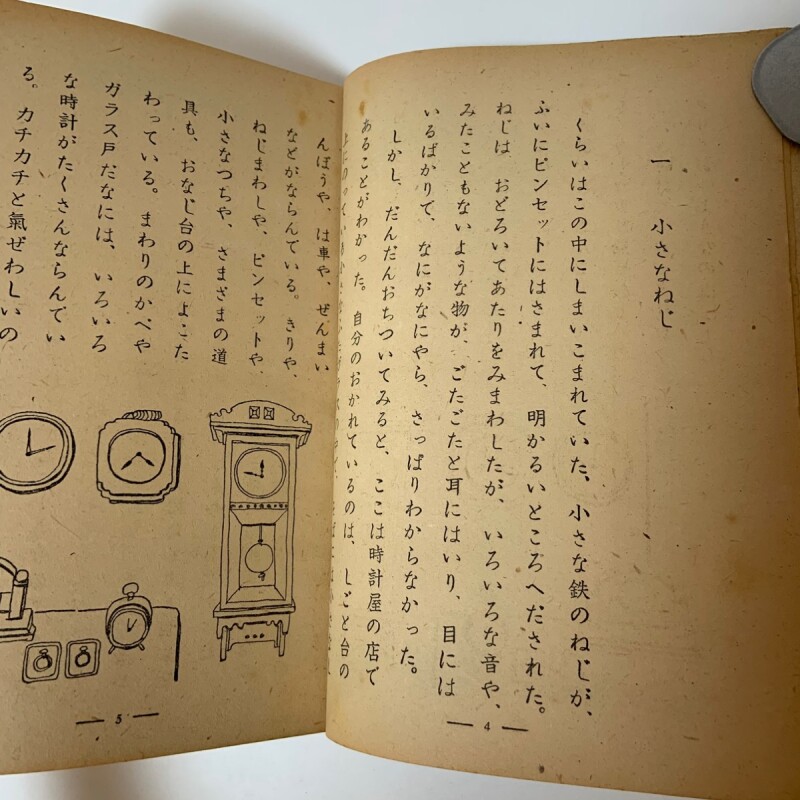 一　小さなねじ
くらいはこの中にしまいこまれていた、小さな鉄のねじが、
ふいにピンセットにはさまれて、明かるいところへだされた。
ねじは　おどろいてあたりをみまわしたが、いろいろな音や、
みたこともないような物が、ごたごたと耳にはいり、目には
いるばかりで、なにがなにやら、さっぱりわからなかった。
しかし、だんだんおちついてみると、ここは時計屋の店で
あることがわかった。自分のおかれているのは、しごと台の
4
んぼうや、は車や、ぜんまい
などがならんでいる。きりや、
ねじまわしや、ピンセットや、
小さなつちや、さまざまの道
具も、おなじ台の上によこた
わっている。まわりのかべや
ガラス戸だなには、いろいろ
な時計がたくさんならんでい
る。カチカチと氣ぜわしいの
5